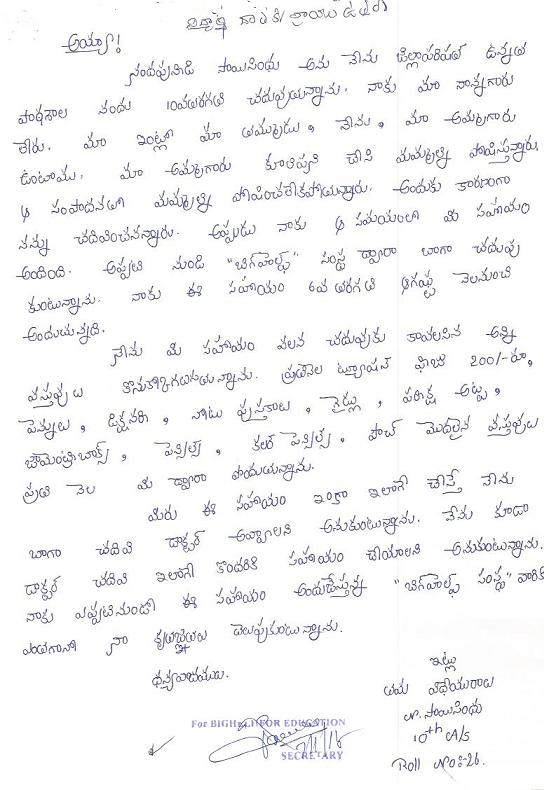 విద్యార్థి గారికి వ్రాయు ఉత్తరం
అయ్యా!
నందపునీడి సాయిసింధు అను నేను జిల్లాపరిషత్ ఉన్నత
పాఠశాల నందు 10వతరగతి చదువుతున్నాను. నాకు మా నాన్నగారు
లేరు. మా ఇంట్లో మా తమ్ముడు, నేను, మా అమ్మగారు
ఉంటాము. మా అమ్మగారు కూలిపని చేసి మమ్మల్ని పోషిస్తున్నారు.
ఆ సంపాదనతో మమ్మల్ని పోషించలేకపోయున్నారు. అందుకు కారణంగా
నన్ను చదివించనన్నారు. అప్పుడు నాకు ఆ సమయంలో మీ సహాయం
అందింది. అప్పటి నుండి "బిగ్‌హెల్ప్" సంస్థ ద్వారా బాగా చదువు
కుంటున్నాను. నాకు ఈ సహాయం 6వ తరగతి ఆగష్టు నెలనుంచి
అందుతున్నది.
నేను మీ సహాయం వలన చదువుకు కావలసిన అన్ని
వస్తువులు కొనుక్కోగలుగుతున్నాను. ప్రతినెల ట్యూషన్ ఫీజు 200/-రూ,
పెన్నులు, డిక్షనరి, నోటు పుస్తకాలు, గైడ్లు, పరీక్ష అట్ట,
జామెంట్రిబాక్స్, పెన్సిల్స్, కలర్ పెన్సిల్స్, పౌచ్ మొదలైన వస్తువులు
ప్రతి నెల మీ ద్వారా పొందుతున్నాను.
మీరు ఈ సహాయం ఇంకా ఇలాగే చేస్తే నేను
బాగా చదివి డాక్టర్ అవ్వాలని అనుకుంటున్నాను. నేను కూడా
డాక్టర్ చదివి ఇలాగే కొందరికి సహాయం చేయాలని అనుకుంటున్నాను.
నాకు ఎప్పటినుండో ఈ సహాయం అందజేస్తున్న "బిగ్‌హెల్ప్ సంస్థ" వారికి
నా కృతజ్ఞతలు తెలుపుకుంటున్నాను.
ధన్యవాదములు.
ఇట్లు
తమ విధేయురాలు
N. సాయిసింధు
10th A/S
Roll No:-26.
For BIGHELP FOR EDUCATION
SECRETARY